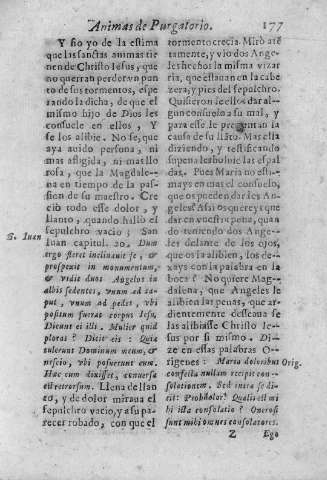 Animas de Purgatorio. 177
Y fio yo de la estima
que las sanctas animas tie
nen de Christo Iesus, que
no querran perder vn pun
to de sus tormentos, espe
rando la dicha, de que el
mismo hijo de Dios les
consuele en ellos, Y
se los alibie. No se, que
aya auido persona, ni
mas afligida, ni mas llo
rosa, que la Magdale-
na en tiempo de la pas-
sien de su maestro. Cre
cio todo esse dolor, y
llanto, quando hallò el
sepulchro vacio; San
S. Iuan
Iuan capitul. 20. Dum
ergo fleret inclinauit se, &
prospexit in monumentum,
& vidit duos Angelos in
albis sedentes, vnum ad ca-
put, vnum ad pedes, vbi
positum fuerat corpus Iesu,
Dicunt ei illi. Mulier quid
ploras? Dicit eis: Quia
tulerunt Dominum meum, &
nescio, vbi posuerunt eum.
Hæc cum dixisset, conuersa
est retrorsum. Llena de llan
to, y de dolor miraua el
sepulchro vacio, y a su pa
recer robado, con que el
tormento crecia. Mirò atē
tamente, y vio dos Ange-
les hechos la misma vizar
ria, que estauan en la cabe
zera, y pies del sepulchro.
Quisieron le ellos dar al-
gun consuelo a su mal, y
para esse le preguntan la
causa de su llāto. Mas ella
diziendo, y testificando
su pena les boluie las espal
das. Pues Maria no esti-
mays en mas el consuelo,
que os pueden dar los An
geles? Asi os quereys que
dar en vuestra pena, quan
do teniendo dos Ange-
les delante de los ojos,
que os la alibien, los de-
xays con la palabra en la
boca? No quiere Magda-
lena, que Angeles le
alibien las penas, que ar-
dientemente desseaua se
las alibiasse Christo Ie-
sus por si mismo. Di-
ze en essas palabras O-
rigenes: Maria doloribus
Orig.
confecta nullam recipit con-
solationem. Sed intra se di-
cit: Prohdolor! Qualis est mi
hi illa consolatio? Onerosi
sunt mihi omnes consolatores.
Z Ego